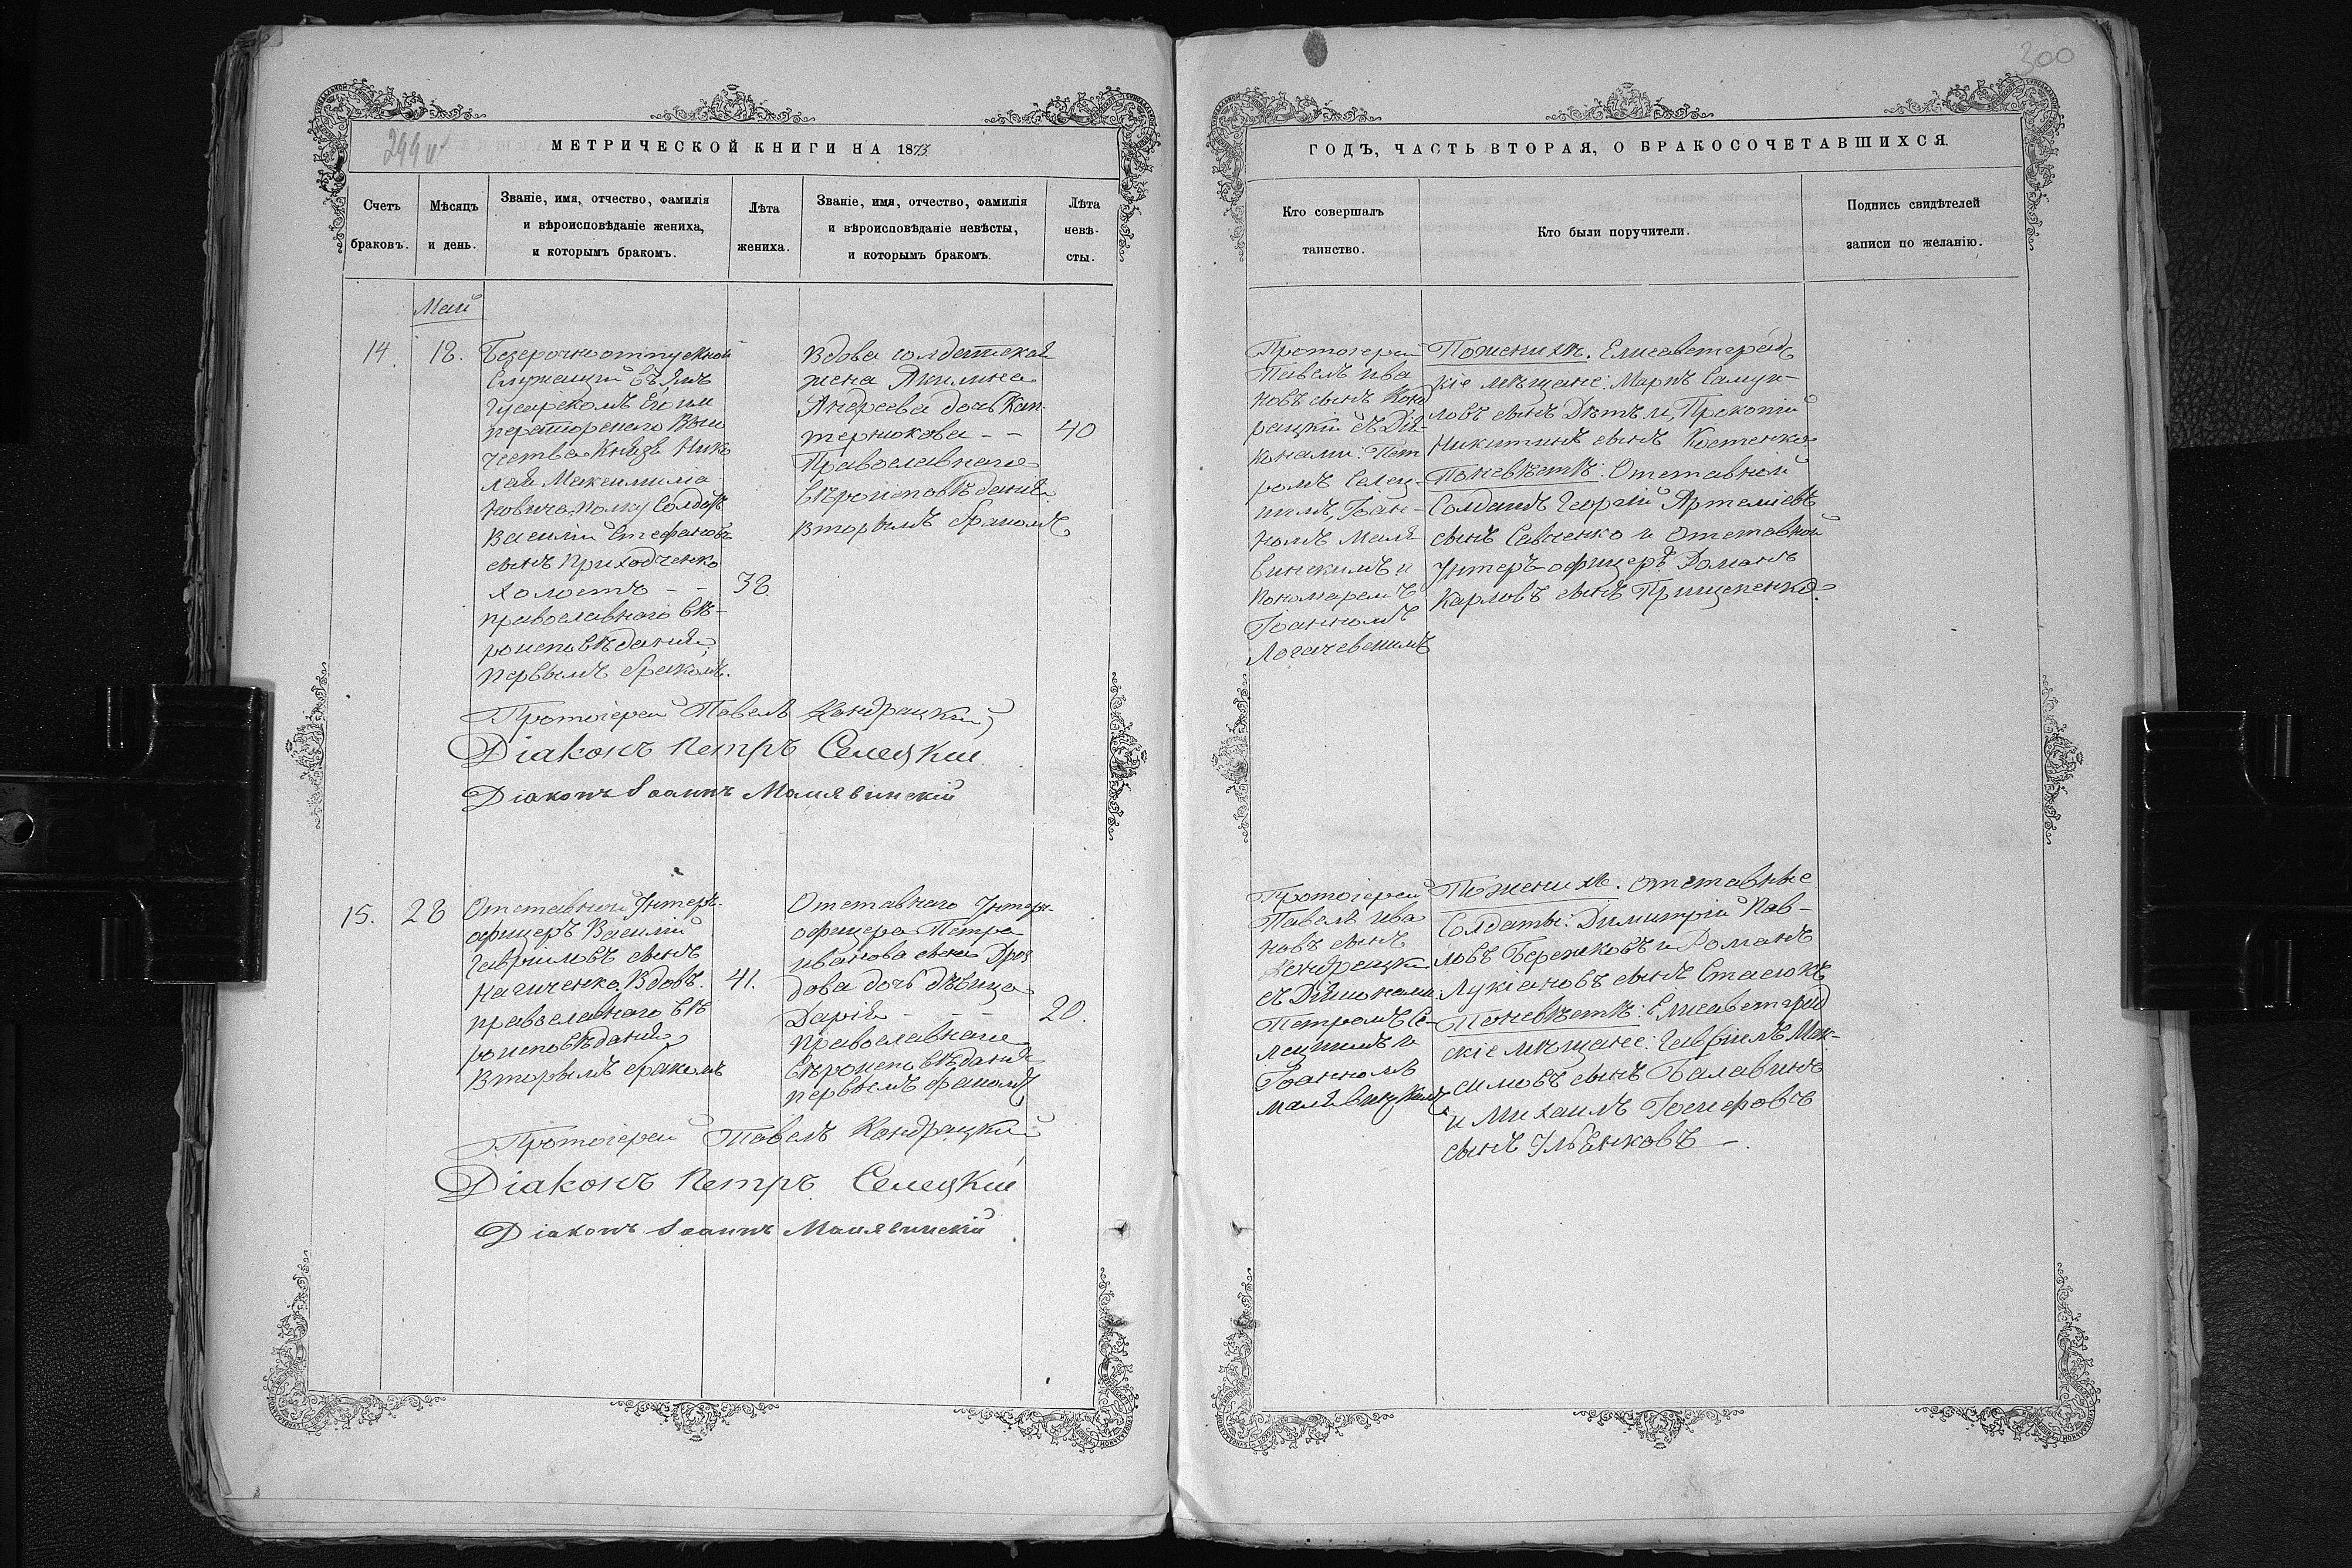 299 об
МЕТРИЧЕСКОЙ КНИГИ НА 1873
Счетъ
браковъ.
Мѣсяцъ
и день.
Званіе, имя, отчество, фамилія
и вѣроисповѣданіе жениха,
и которымъ бракомъ.
Лѣта
жениха.
Званіе, имя, отчество, фамилія
и вѣроисповѣданіе невѣсты,
и которымъ бракомъ.
Лѣта
невѣ-
сты.
Май
14.
18.
Безсрочноотпускной
Служащій въ
Гусарскомъ Его им
ператорскаго Высо
чества Князя Нико
лая Максимиліа
новича полку Солдатъ
Василій Стефановъ
сынъ Приходченко
холостъ - -
православнаго вѣ-
роисповѣданія,
первымъ бракомъ.
38.
Вдова солдатская
жена Акилина
Андреева дочь Кан-
тернюкова - -
Православнаго
вѣроисповѣданія
вторымъ бракомъ
40
Протоіерей Павелъ Кондрацкій
Діаконъ Петръ Селецкій
Діаконъ Іоаннъ Малявинскій
15.
28
Отставной Унтеръ-
офицеръ Василій
Гавріиловъ сынъ
Нагиченко. Вдовъ.
православнаго вѣ
роисповѣданія
Вторымъ бракомъ
41.
Отставнаго Унтеръ-
офицера Петра
Иванова сына Дроз
дова дочь дѣвица
Дарія - - -
православнаго
вѣроисповѣданія
первымъ бракомъ
20.
Протоіерей Павелъ Кондрацкій
Діаконъ Петръ Селецкій
Діаконъ Іоаннъ Малявинскій
300
ГОДЪ, ЧАСТЬ ВТОРАЯ, О БРАКОСОЧЕТАВШИХСЯ.
Кто совершалъ
таинство.
Кто были поручители.
Подпись свидѣтелей
записи по желанію.
Протоіерей
Павелъ Ива
новъ сынъ Конд
рацкій съ Діа-
конами: Пет
ромъ Селец-
кимъ, Іоан-
номъ Маля-
винскимъ и
Пономаремъ
Іоанномъ
Логачевскимъ
По женихѣ. Елисаветград
скіе мѣщане: Маркъ Самуи-
ловъ сынъ, Прокопій
Никитинъ сынъ Костенко
По невѣстѣ: Отставной
Солдатъ Георгій Артеміевъ
сынъ Савченко и Отставной
Унтеръ-офицеръ Романъ
Карповъ сынъ Прищепенко.
Протоіерей
Павелъ Ива
новъ сынъ
Кондрацкій
съ Діаконами
Петромъ Се-
лецкимъ и
Іоанномъ
Малявинскимъ
По женихѣ. Отставные
Солдаты: Димитрій Пав-
ловъ Бережковъ и Романъ
Лукіановъ сынъ Стасюкъ
По невѣстѣ: Елисаветград
скіе мѣщане: Гавріилъ Мак-
симовъ сынъ Балавинъ
и Михаилъ Іосифовъ
сынъ Ульенковъ -.